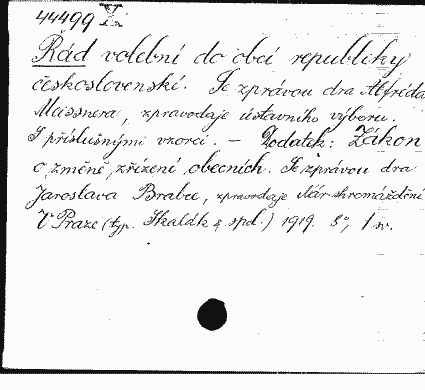 44499 X
Řád volební do obcí republiky
československí. Se zprávou dra Alfréda
Meissnera, zpravodaje ústavního výboru.
S příslušnými vzorci. — Dodatek: Zákon
o změně zřízení obecních. Se zprávou dra
Jaroslava Brabce, zpravodaje Nár. shromáždění
V Praze (typ. Skaldk & spol.) 1919. 8°, 1 sv.